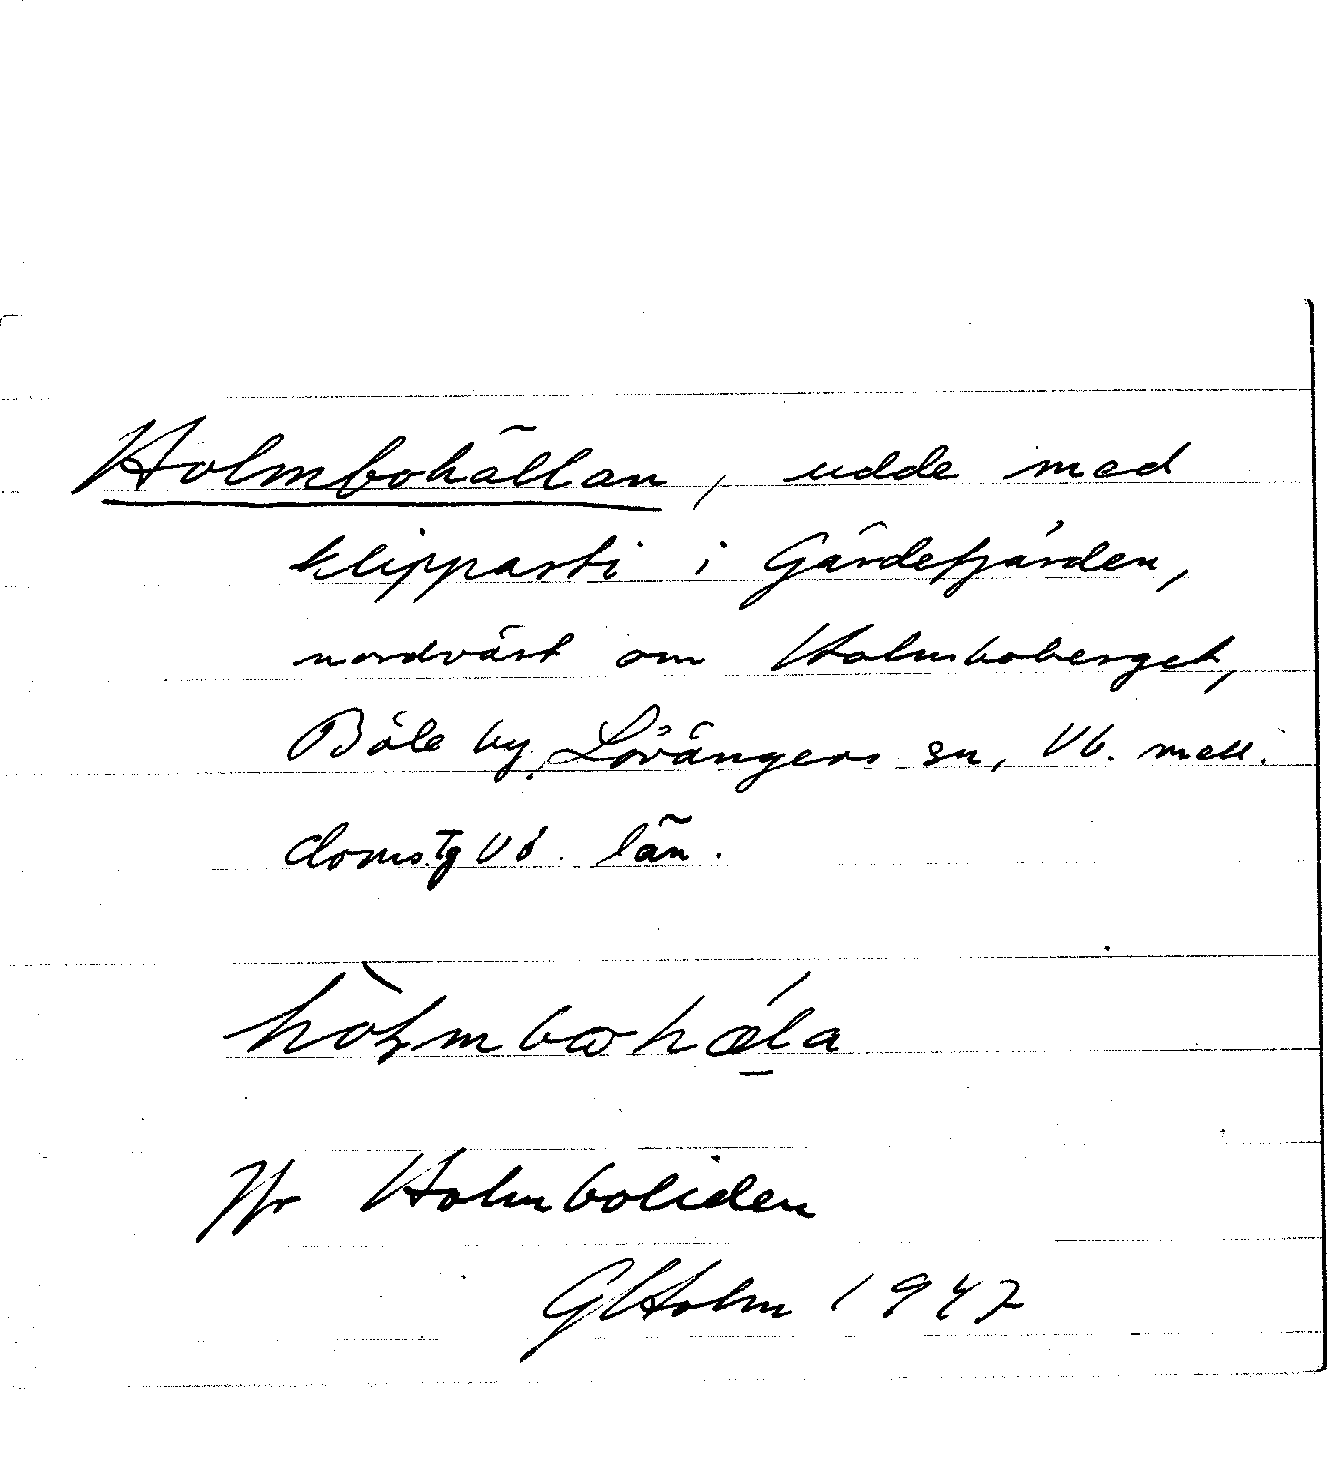 Holmbohällan, udde med
klipparti i Gärdefjärden,
nordväst om Holmboberget,
Böle by, Lövångers sn, Vb. mell.
doms. Tg Vb. län.
Jfr Holmboliden
GHolm 1947